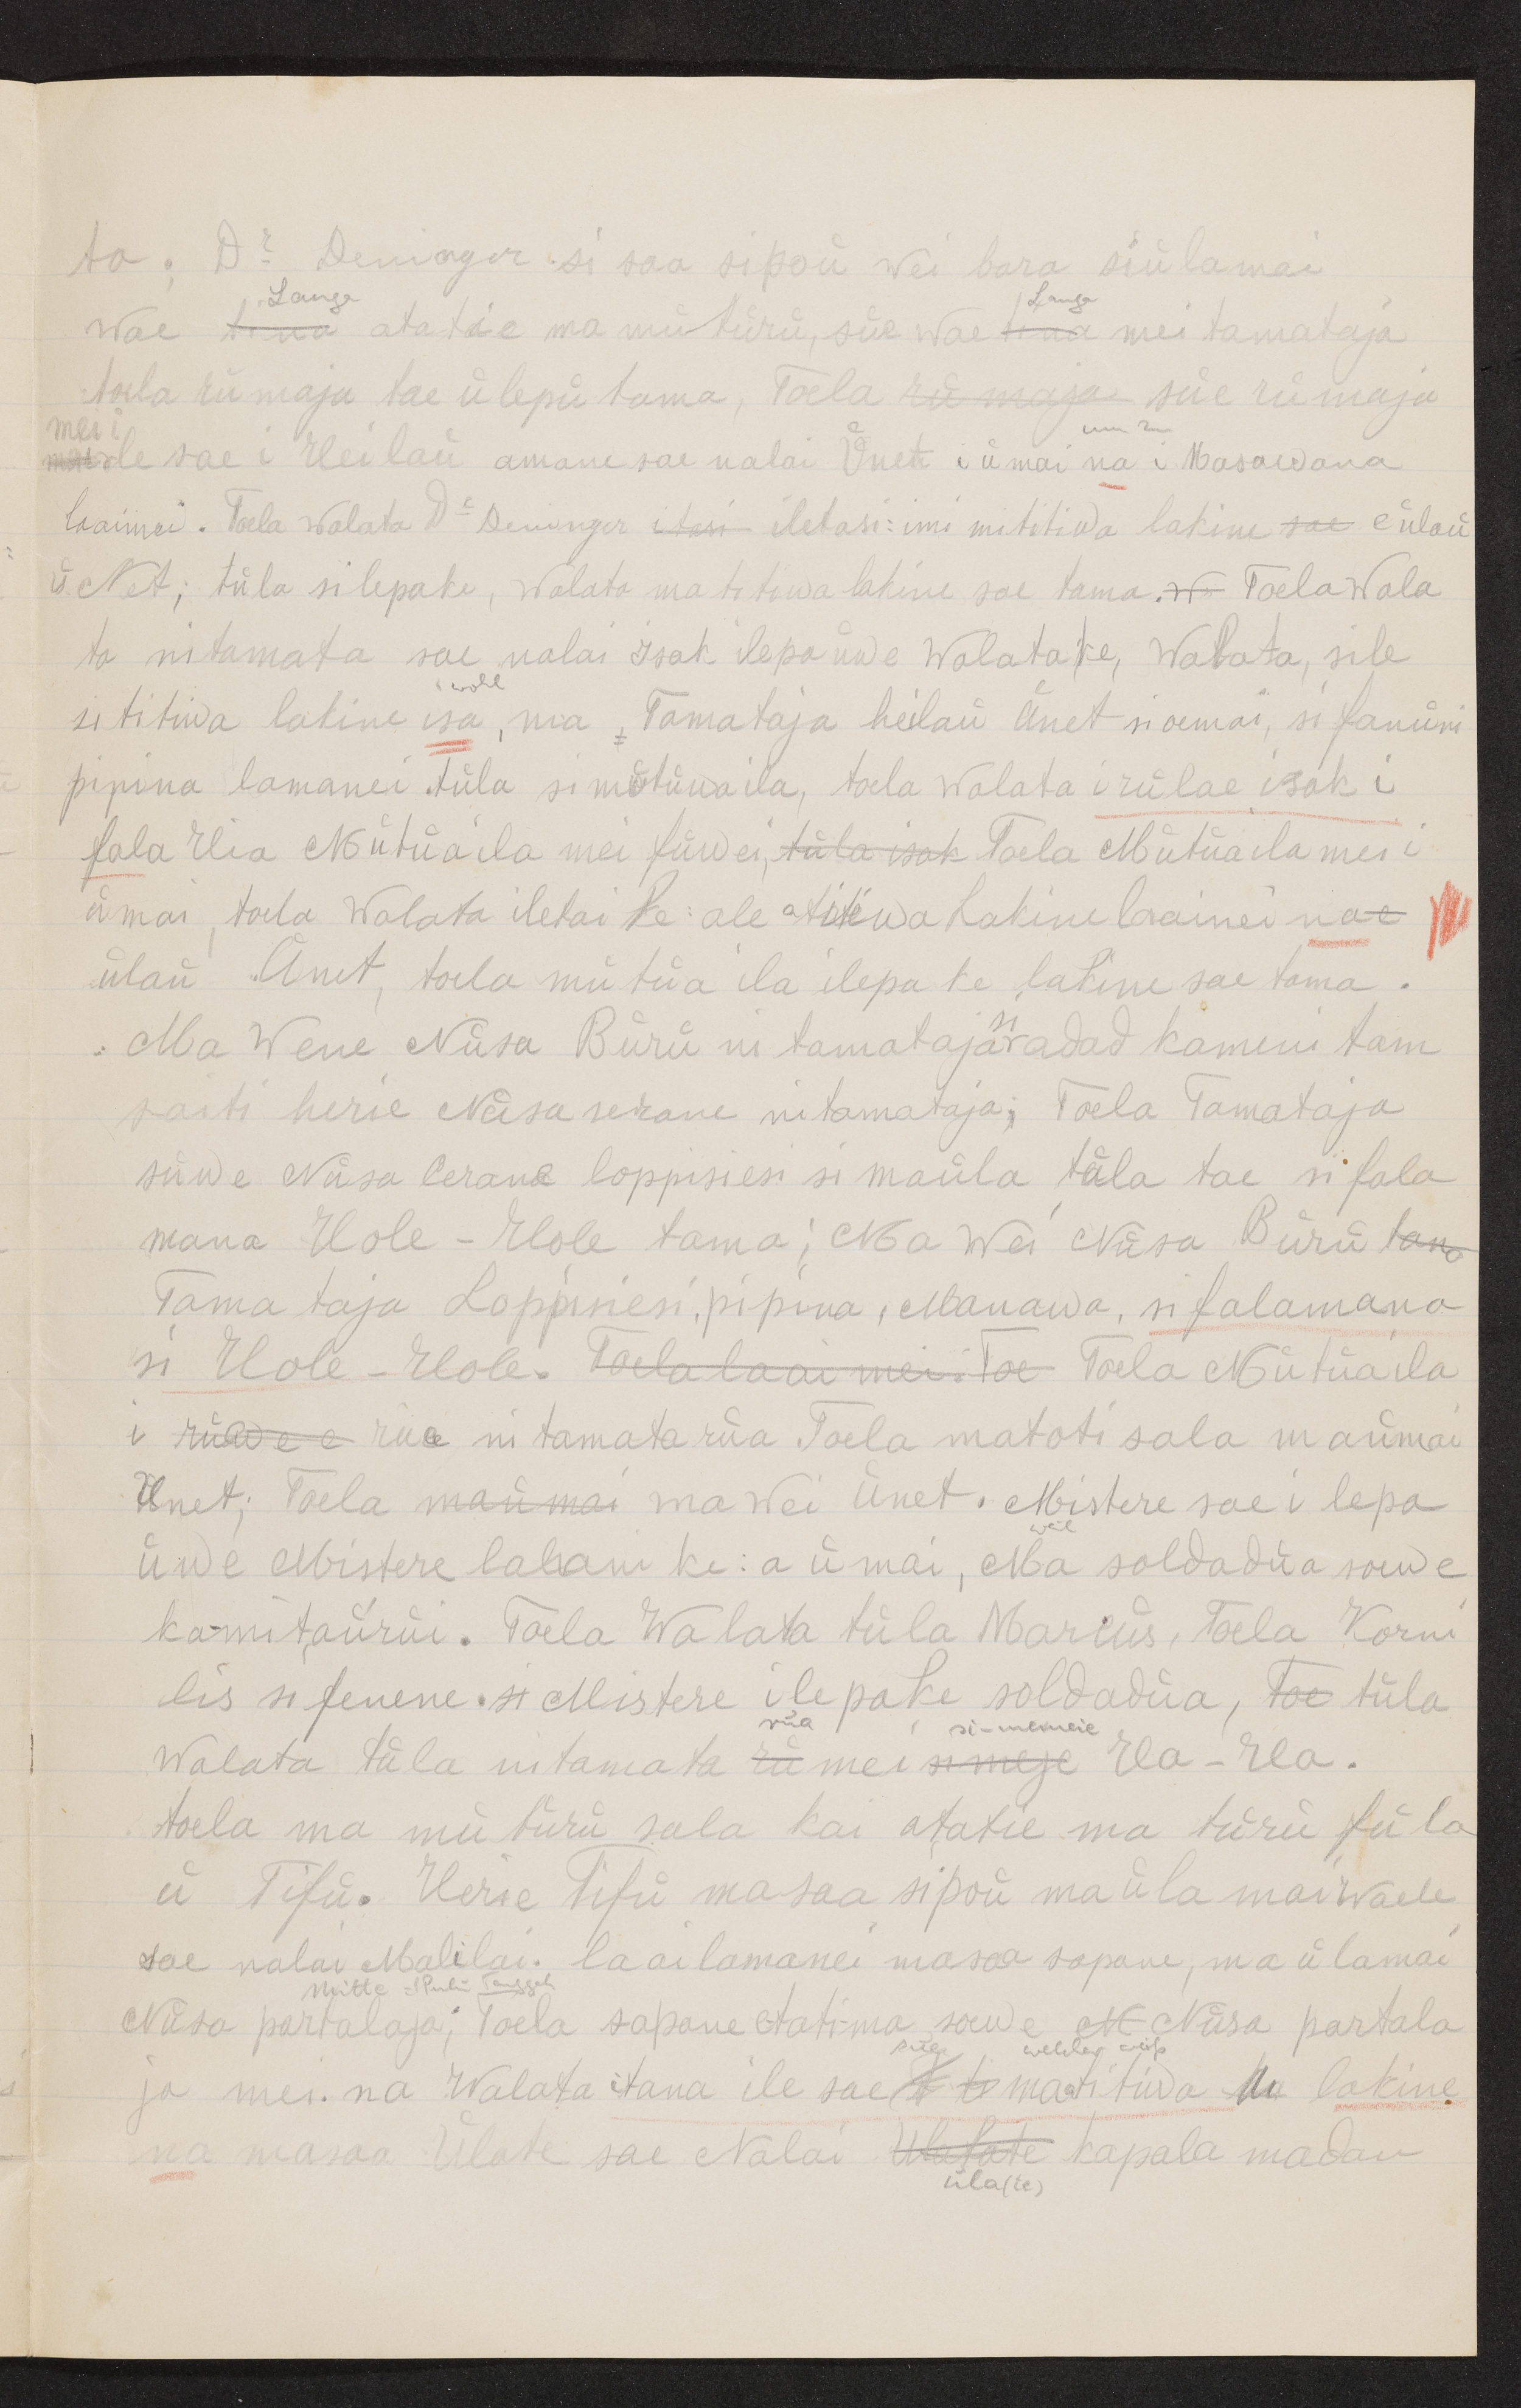 ta; Dr Deninger si saa sipoü wei bara siülamai
Lange Lange
wae tinu atatie ma mütürü, süe wae tinu mei tamataja
toela rümaja tae ülepü tama, Toela rü maja süe rümaja
mei i
de sae i Heilaü amane sae nalai Ünet i ümai na i Masawana
laaimei. Toela Walata Dr Deninger itasi iletasi: imi mititiwa lakine sae e ülaü
ü Net; tüla silepake, Walata matitiwa lakine sae tama. W Toela Wala
ta nitamata sae nalai Isak ilepa üwe Walata ke, Walata, sile
wohl
sititiwa lakine isa, ma, Tamataja heilaü Ünet si oemai, si fanüni
pipina lamanei tüla simütüwaila, toela Walata i rülae isak i
fala Hia Mütüaila mei füwei, tüla isak Toela Mütüaila mei i
ümai, toela Walata iletai ke: ale atitiwa Lakine laainei nae
ülaü Ünet, toela mütüa ila ilepa ke lakine sae tama.
si
Ma Wene Nüsa Bürü ni tamataja radad kameni tam
saiti herie Nüsa serane nitamataja; Toela Tamataja
süwe Nüsa Cerane loppisiesi si maüla tüla tae si fala
mana Hole-Hole tama; Ma Wei Nüsa Bürü tama
Tama taja Loppisiesi, pipina, Manawa, si falamana
si Hole-Hole. Toela laai mei. Toe Toela Mütüaila
i rüwe e rüa ni tamata rüa Toela matoti sala maümai
Ünet; Toela maümai ma wei Ünet. Mistere sae i lepa
weil
üwe Mistere labani ke: a ümai, Ma soldadüa soewe
kamitaürüi. Toela Walata tüla Marcüs, Toela Korni
lis si fenene. si Mistere ilepa ke soldadüa, Toe tüla
rüa si-memeie
Walata tüla nitamata rü mei simeje Ha-Ha.
toela ma mütürü sala kai atatie ma türü füla
ü Tifü. Herie Tifü masaa sipoü maüla mai waele
sae nalai Malilai. laai lamanei masaa sapane, ma ülamai
Mitte = Pulu Tanggah
Nüsa partalaja; Toela sapane etatima soewe M Nüsa partala
ja mei. na Walata itana ile sae matitiwa lakine
na masaa Ülate sae Nalai Ulatate kapala madan
üla(te)